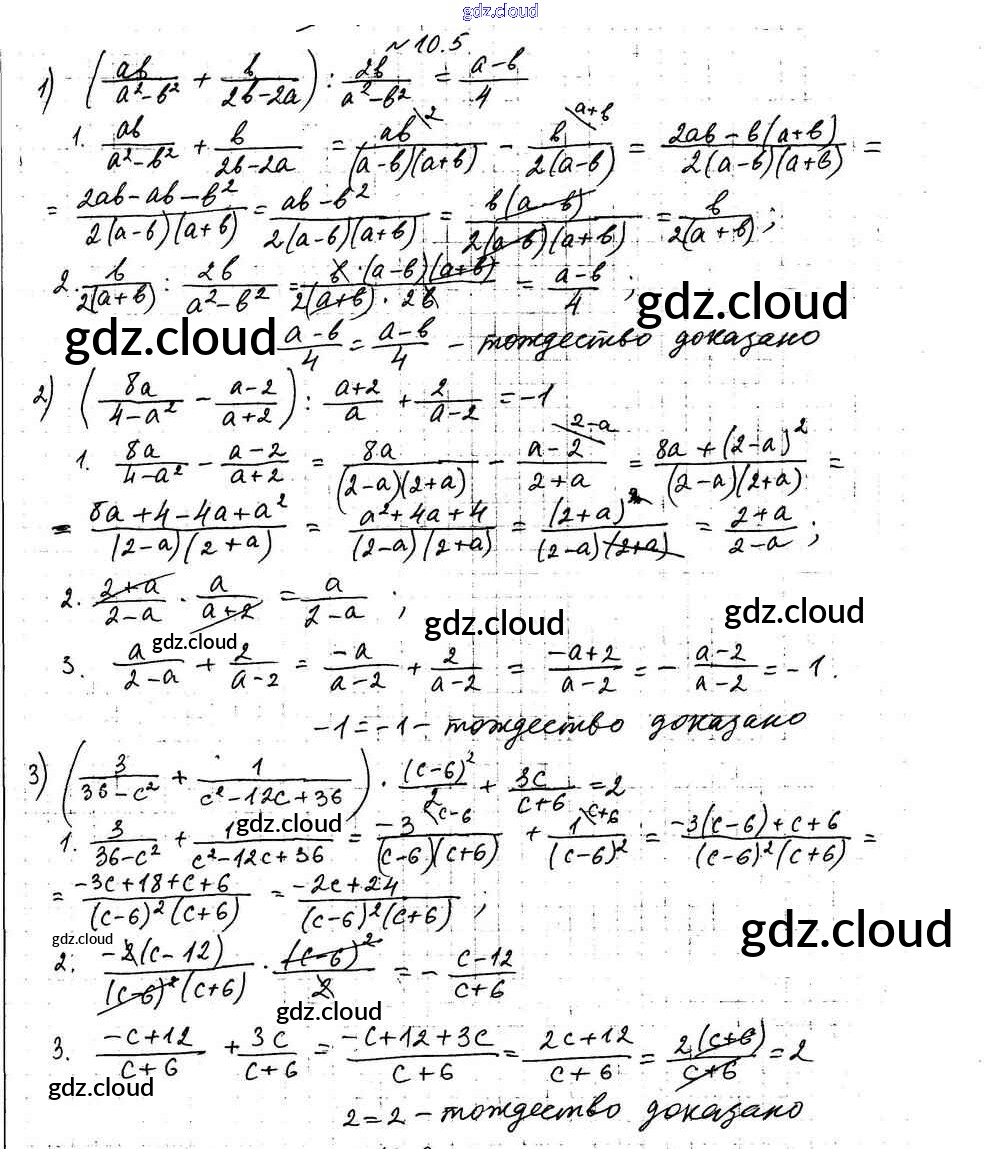 gdz.cloud
№ 10.5.
1) (ab/(a²-b²) + b/(2b-2a)) : 2b/(a²-b²) = (a-b)/4
1. ab/(a²-b²) + b/(2b-2a) = ab\2/((a-b)(a+b)) - b\a+b/(2(a-b)) = (2ab-b(a+b))/(2(a-b)(a+b)) =
= (2ab-ab-b²)/(2(a-b)(a+b)) = (ab-b²)/(2(a-b)(a+b)) = b(a-b)/(2(a-b)(a+b)) = b/(2(a+b));
2. b/(2(a+b)) : 2b/(a²-b²) = b·(a-b)(a+b)/(2(a+b)·2b) = (a-b)/4;
gdz.cloud
gdz.cloud (a-b)/4 = (a-b)/4 - тождество доказано
2) (8a/(4-a²) - (a-2)/(a+2)) : (a+2)/a + 2/(a-2) = -1
1. 8a/(4-a²) - (a-2)/(a+2) = 8a/((2-a)(2+a)) - (a-2)\2-a/(2+a) = (8a+(2-a)²)/((2-a)(2+a)) =
= (8a+4-4a+a²)/((2-a)(2+a)) = (a²+4a+4)/((2-a)(2+a)) = (2+a)²/((2-a)(2+a)) = (2+a)/(2-a);
2. (2+a)/(2-a) · a/(a+2) = a/(2-a);
gdz.cloud gdz.cloud gdz.cloud
3. a/(2-a) + 2/(a-2) = -a/(a-2) + 2/(a-2) = (-a+2)/(a-2) = -(a-2)/(a-2) = -1.
-1 = -1 - тождество доказано
3) (3/(36-c²) + 1/(c²-12c+36)) · (c-6)²/2 + 3c/(c+6) = 2
gdz.cloud
1. 3/(36-c²) + 1/(c²-12c+36) = -3\c-6/((c-6)(c+6)) + 1\c+6/(c-6)² = (-3(c-6)+c+6)/((c-6)²(c+6)) =
= (-3c+18+c+6)/((c-6)²(c+6)) = (-2c+24)/((c-6)²(c+6));
gdz.cloud gdz.cloud
2. -2(c-12)/((c-6)²(c+6)) · (c-6)²/2 = -(c-12)/(c+6)
gdz.cloud
3. (-c+12)/(c+6) + 3c/(c+6) = (-c+12+3c)/(c+6) = (2c+12)/(c+6) = 2(c+6)/(c+6) = 2
gdz.cloud
2 = 2 - тождество доказано